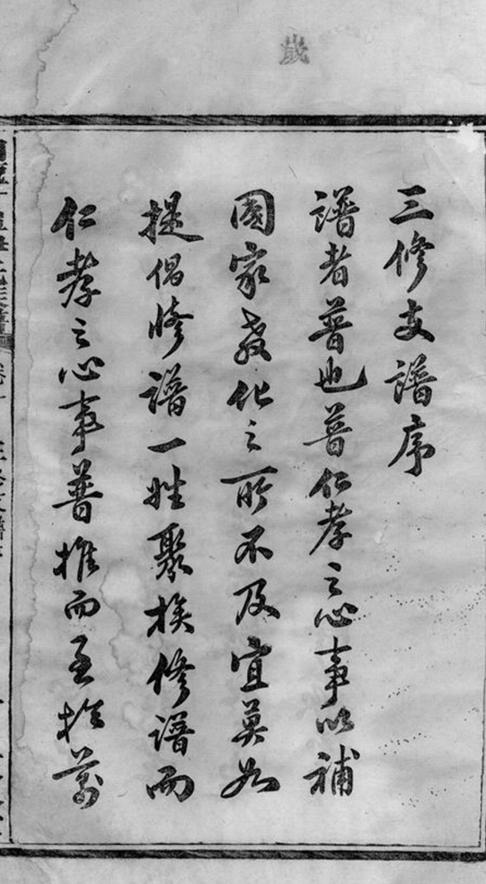 三修支譜序
譜者普也普仁孝之心事以補
國家教化之所不及宜莫如
提倡修譜一姓聚族修譜而
仁孝之心事普推而至於萬